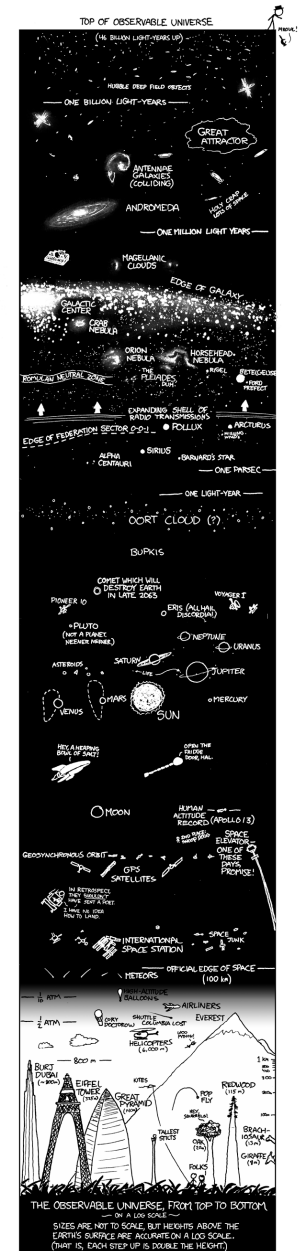 TOP OF OBSERVABLE UNIVERSE
(46 BILLION LIGHT-YEARS UP)
HUBBLE DEEP FIELD OBJECTS
ONE BILLION LIGHT-YEARS
GREAT
ATTRACTOR
ANTENNAE
GALAXIES
(COLLIDING)
HOLY CRAP
LOTS OF SPACE
ANDROMEDA
ONE MILLION LIGHT YEARS
MAGELLANIC
CLOUDS
EDGE OF GALAXY
GALACTIC
CENTER
CRAB
NEBULA
ORION
NEBULA
HORSEHEAD
NEBULA
THE
PLEIADES,
DUH.
RIGEL
BETELGEUSE
FORD
PREFECT
ROMULAN NEUTRAL ZONE
EXPANDING SHELL OF
RADIO TRANSMISSIONS
EDGE OF FEDERATION SECTOR 0-0-1
POLLUX
ARCTURUS
SIRIUS
ALPHA
CENTAURI
BARNARD'S STAR
ONE PARSEC
ONE LIGHT-YEAR
OORT CLOUD (?)
BUPKIS
COMET WHICH WILL
DESTROY EARTH
IN LATE 2063
PIONEER 10
VOYAGER I
ERIS (ALL HAIL
DISCORDIA!)
PLUTO
(NOT A PLANET.
NEENER NEENER)
NEPTUNE
URANUS
SATURN
ASTEROIDS
JUPITER
VENUS
MARS
SUN
MERCURY
HEY, A HEAPING
BOWL OF SALT!
OPEN THE
FRIDGE
DOOR, HAL.
MOON
HUMAN
ALTITUDE
RECORD (APOLLO 13)
SPACE
ELEVATOR—
ONE OF
THESE
DAYS,
PROMISE!
GEOSYNCHRONOUS ORBIT
GPS
SATELLITES
IN RETROSPECT,
THEY SHOULDN'T
HAVE SENT A POET.
I HAVE NO IDEA
HOW TO LAND.
INTERNATIONAL
SPACE STATION
SPACE
JUNK
OFFICIAL EDGE OF SPACE
(100 km)
METEORS
HIGH-ALTITUDE
BALLOONS
1/10 ATM
AIRLINERS
1/2 ATM
CORY
DOCTOROW
SHUTTLE
COLUMBIA LOST
EVEREST
HELICOPTERS
(6,000 m)
BURJ
DUBAI
(~800m)
800 m
EIFFEL
TOWER
(325m)
GREAT
PYRAMID
KITES
POP
FLY
REDWOOD
(115 m)
1 km
OAK
TALLEST
STILTS
BRACH-
IOSAUR
(13m)
GIRAFFE
FOLKS
THE OBSERVABLE UNIVERSE, FROM TOP TO BOTTOM
~ ON A LOG SCALE ~
SIZES ARE NOT TO SCALE, BUT HEIGHTS ABOVE THE
EARTH'S SURFACE ARE ACCURATE ON A LOG SCALE.
(THAT IS, EACH STEP UP IS DOUBLE THE HEIGHT.)